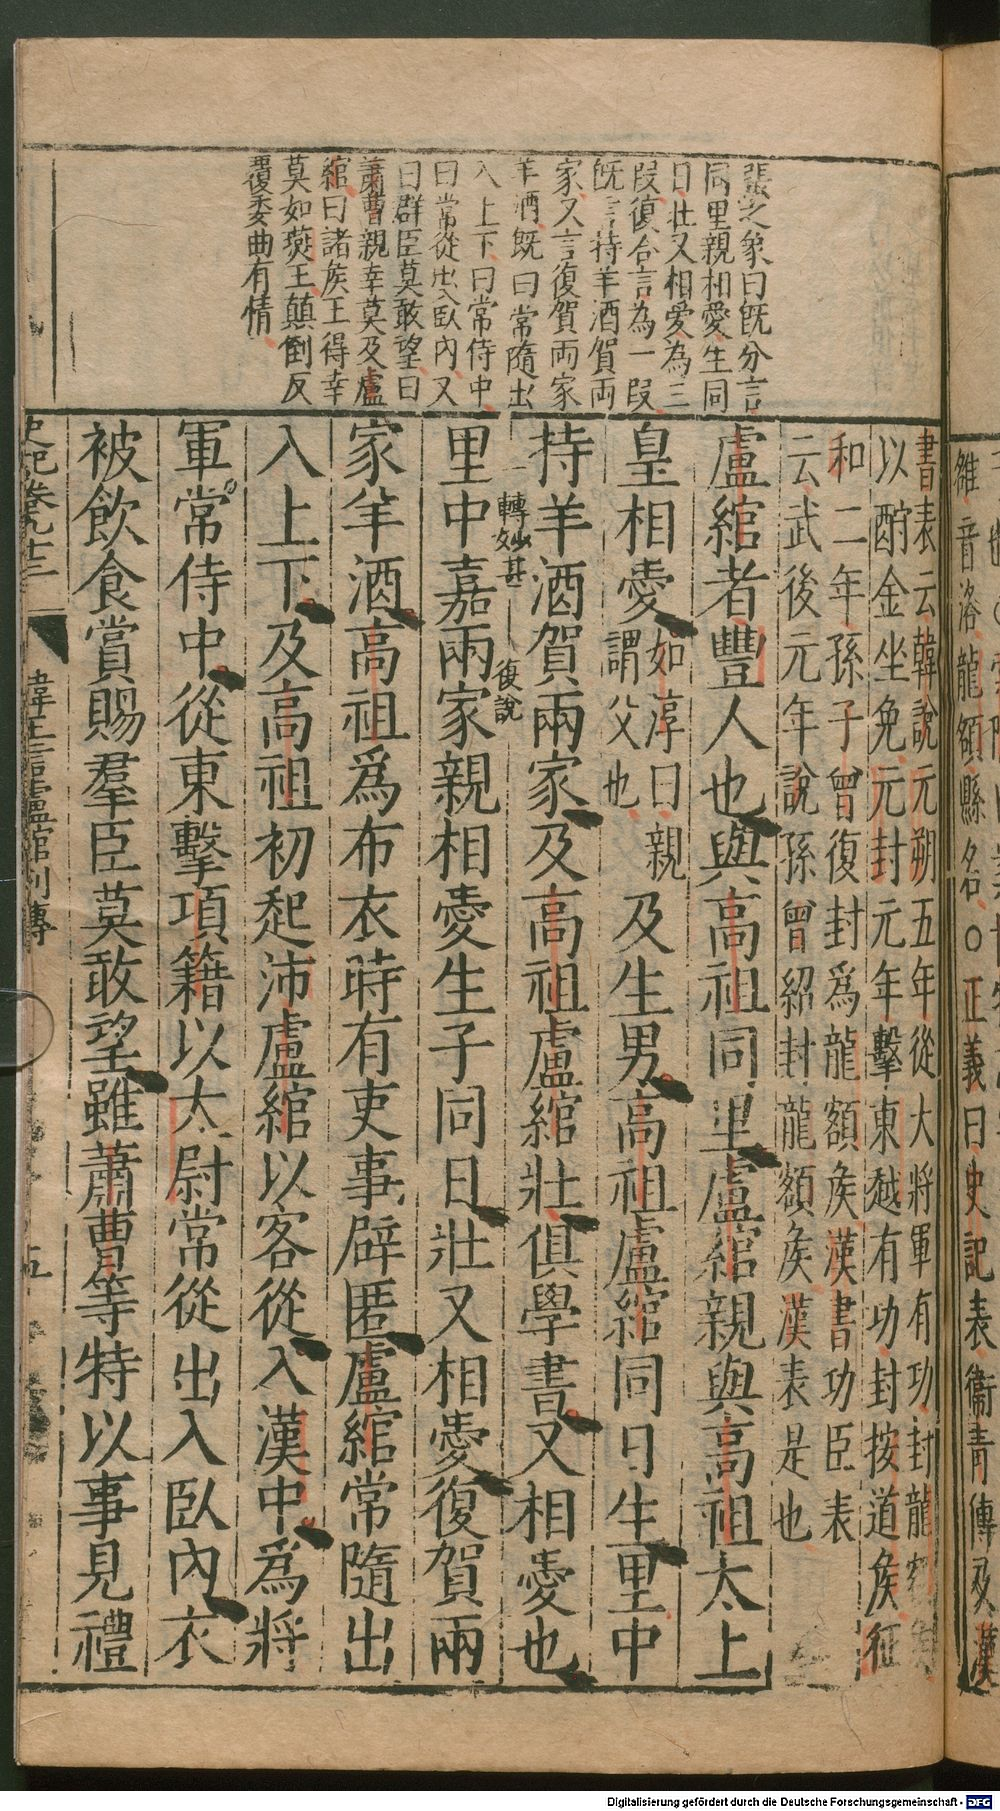 張之象曰既分言
同里親相愛生同
日壯又相愛為三
段復合言為一段
既言持羊酒賀両
家又言復賀両家
羊酒既曰常隨出
入上下曰常侍中
曰常從出入臥內又
曰群臣莫敢望曰
蕭曹親幸莫及盧
綰曰諸侯王得幸
莫如燕王顛倒反
覆委曲有情
書表云韓說元朔五年從大將軍有功封龍額
以酎金坐免元封元年擊東越有功封按道侯征
和二年孫子曾復封爲龍額侯漢書功臣表
云武後元年說孫曾紹封龍額侯漢表是也
盧綰者豐人也與高祖同里盧綰親與高祖太上
皇相愛如淳曰親謂父也及生男高祖盧綰同日生里中
持羊酒賀兩家及高祖盧綰壯俱學書又相愛也
轉妙甚
復說
里中嘉兩家親相愛生子同日壯又相愛復賀兩
家羊酒高祖爲布衣時有吏事辟匿盧綰常隨出
入上下及高祖初起沛盧綰以客從入漢中爲將
軍常侍中從東擊項籍以太尉常從出入臥內衣
被飲食賞賜羣臣莫敢望雖蕭曹等特以事見禮
史記卷九十三
韓王信盧綰列傳
五
雒音洛龍額縣名○正義曰史記表衞青傳及漢
Digitalisierung gefördert durch die Deutsche Forschungsgemeinschaft - DFG